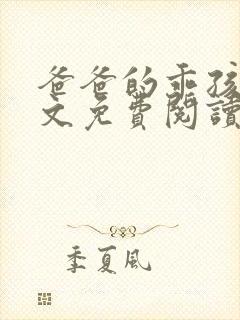 爸爸的乖孩
文免費閱讀
季夏風